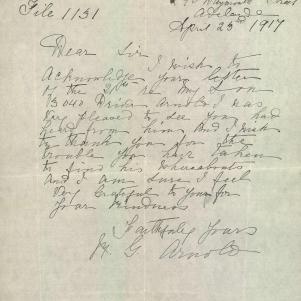 File 1131
Adelaide
April 23rd 1917
Dear Sir
I wish to
Acknowledge your letter
of the 21st re My Son
13040 Driver Arnold I was
Very Pleased to See you had
heard from him And I wish
to thank you for the
trouble you have taken
to find his Whereabouts
And I am Sure I feel
Very Grateful to You for
Your Kindness
Faithfully Yours
G Arnold